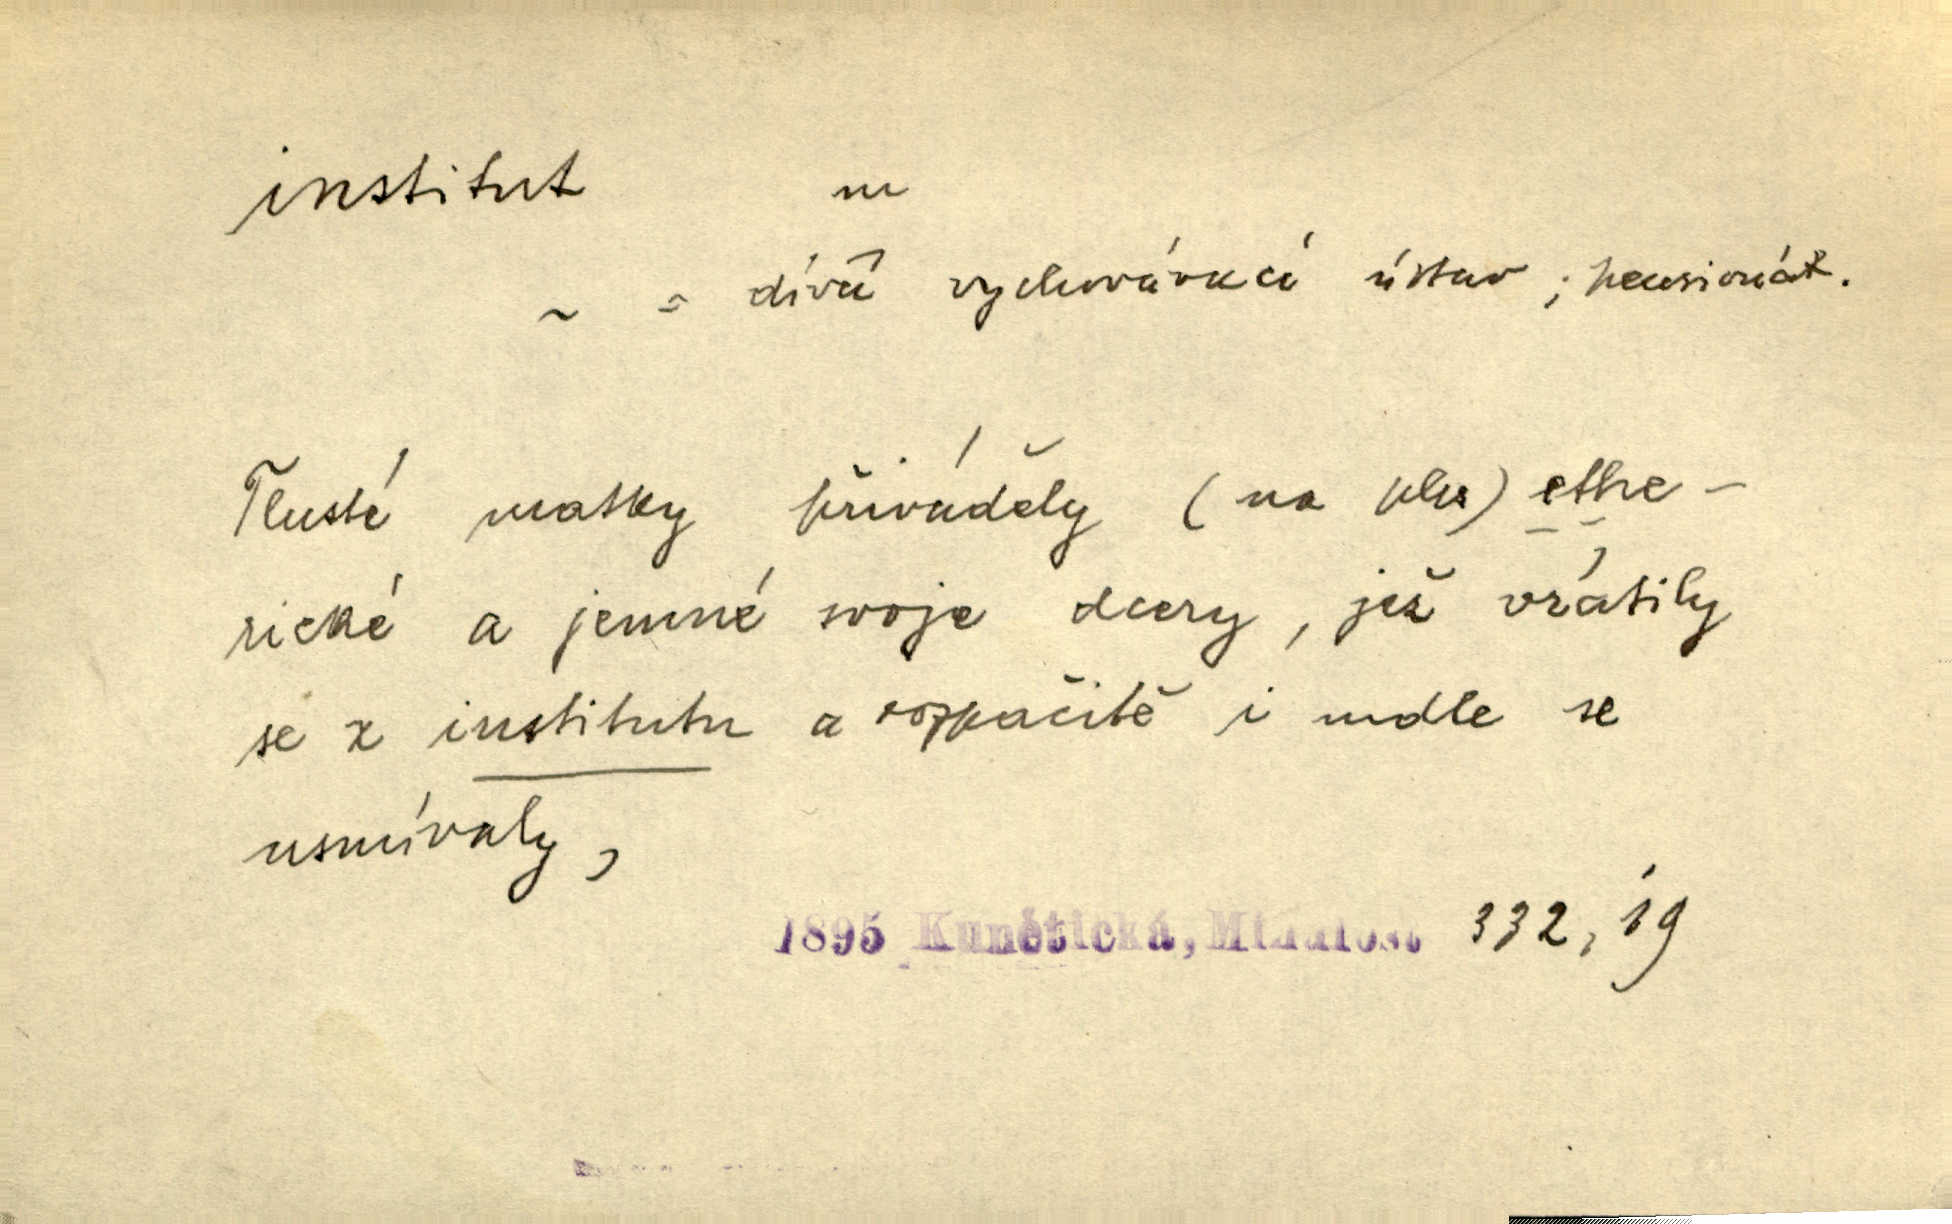 institut m
~ = dívčí vychovávací ústav; pensionát.
Tlusté matky přiváděly (na ples) ethe-
rické a jemné svoje dcery, jež vrátily
se z institutu a rozpačitě i mdle se
usmívaly,
1895 Kunětická, Minulost 332, 19